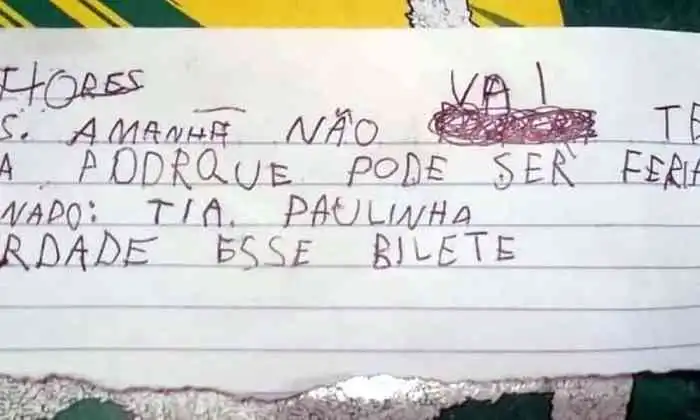 ETORES
VAI
S. AMANHÃ NÃO TE
A PODRQUE PODE SER FERIA
NADO: TIA. PAULINHA
RDADE ESSE BILETE